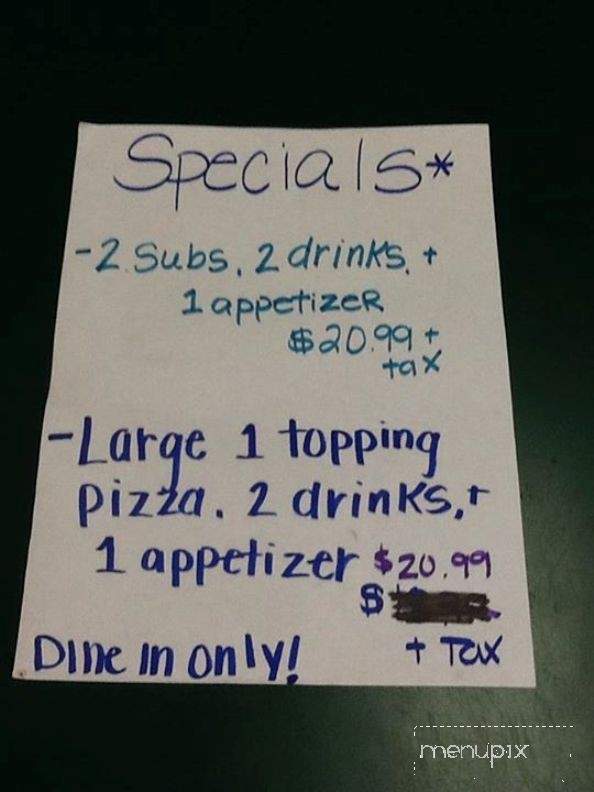 Specials*
-2 Subs, 2 drinks, +
1 appetizer
$20.99 +
tax
-Large 1 topping
pizza, 2 drinks, +
1 appetizer $20.99
$
+ Tax
Dine in only!
menupix